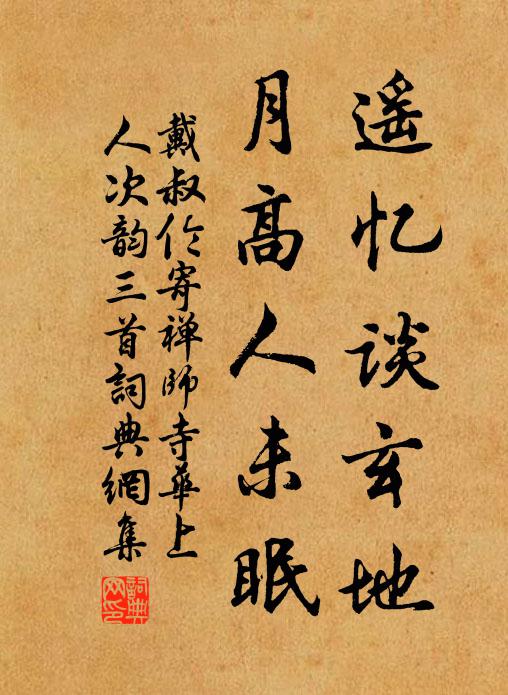 遥忆谈玄地
月高人未眠
戴叔伦寄禅師寺華上
人次韵三首詞典網集
詞典網印